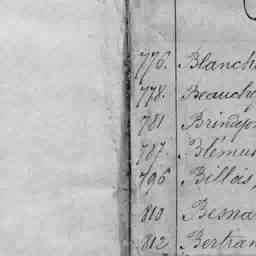 776. Blanch
778. Beauchy
781 Brindejo
787. Blému
796 Billois,
810 Besna
812 Bertran